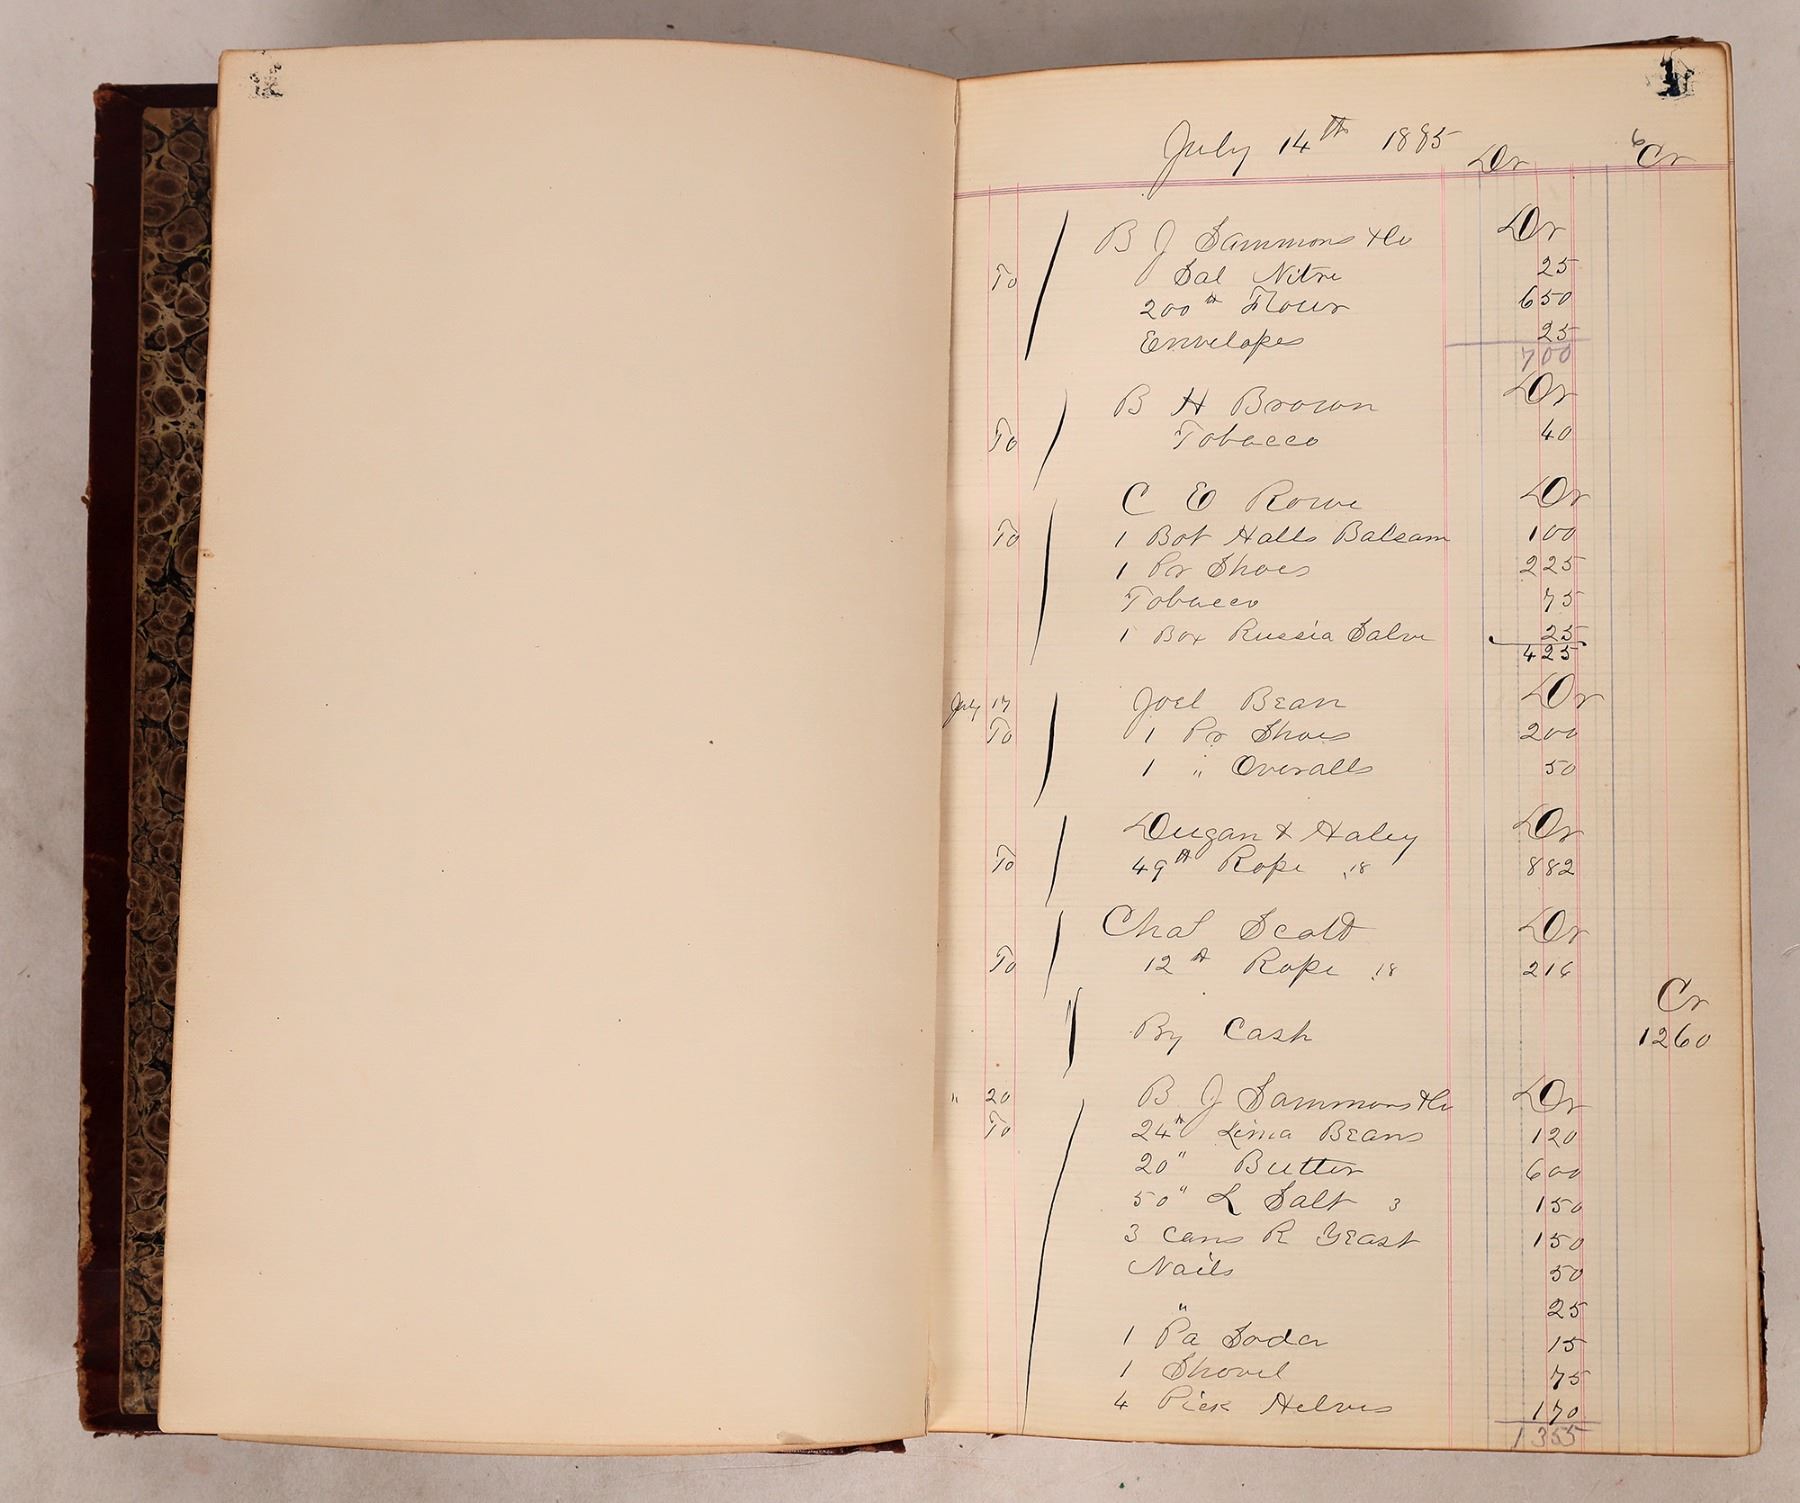 1
July 14th 1885 Dr Cr
B J Sammons & Co Dr
To Sal Nitre 25
200 # Flour 650
Envelopes 25
700
B H Brown Dr
To Tobacco 40
C E Rowe Dr
To 1 Bot Halls Balsam 100
1 Pr Shoes 225
Tobacco 75
1 Box Russia Salve 25
425
July 17 Joel Bean Dr
To 1 Pr Shoes 200
1 " Overalls 50
Dugan & Haley Dr
To 49 # Rope .18 882
Chas Scott Dr
To 12 # Rope .18 216
Cr
By Cash 1260
" 20 B J Sammons & Co Dr
To 24 # Lima Beans 120
20 " Butter 600
50 " L Salt 3 150
3 Cans R Yeast 150
Nails 50
" 25
1 Pa Soda 15
1 Shovel 75
4 Pick Helves 170
1355